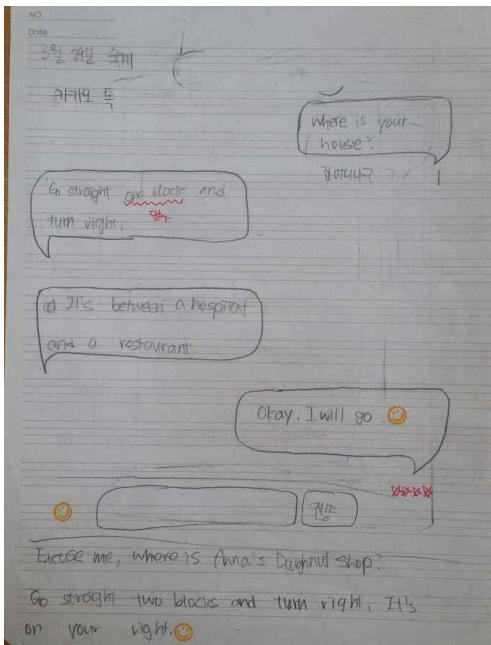 NO.
Date
카카오 톡
Where is your
house?
Go straight one block and
turn right.
It's between a hospital
and a restaurant
Okay. I will go
전송
Excuse me, where is Anna's Doughnut shop?
Go straght two blocks and turn right. It's
on your right.